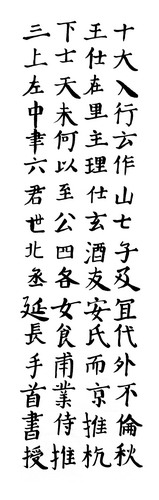 十大入行云作山七子及冝代外不倫秋
王仕在里主理仕玄酒友安氏而京推杭
下士天未何以至公四各女食甫業侍推
三上左中聿六君世北丞延長手首書授